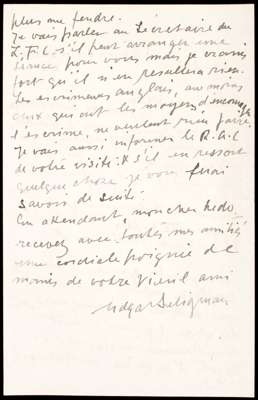 plus me fendre.
Je vais parler au Secrétaire du
L.F.C. s'il peut arranger une
séance pour vous mais je crains
fort qu'il n'en resultera rien.
Les escrimeurs anglais, au moins
ceux qui ont les moyens d'encourager
l'escrime, ne veulent rien faire.
Je vais aussi informer le R.A.C
de votre visite. & s'il en ressort
quelque chose je vous ferai
savoir de suite
En attendant, mon cher Kedo
recevez avec toutes mes amitiés
une cordiale poignée de
mains de votre vieil ami
Edgar Seligman